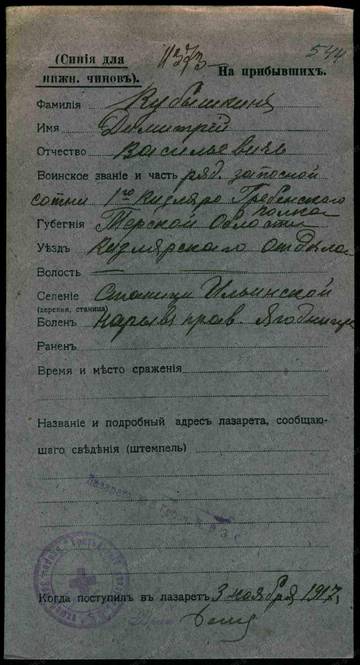 (Синія для
нижн. чиновъ).
На прибывшихъ.
544
Фамилія Кубышкинъ
Имя Димитрій
Отчество Васильевичъ
Воинское званіе и часть ряд. запасной
сотни 1го Кизляро Гребенского
полка
Губернія Терской Области
Уѣздъ Кизлярского отдѣла
Волость
Селеніе Станици Ильинской
(деревня, станица)
Боленъ Нарывъ прав. Ягодицы
Раненъ
Время и мѣсто сраженія
Названіе и подробный адресъ лазарета, сообщаю-
щаго свѣдѣнія (штемпель)
Когда поступилъ въ лазаретъ 3 ноября 1917